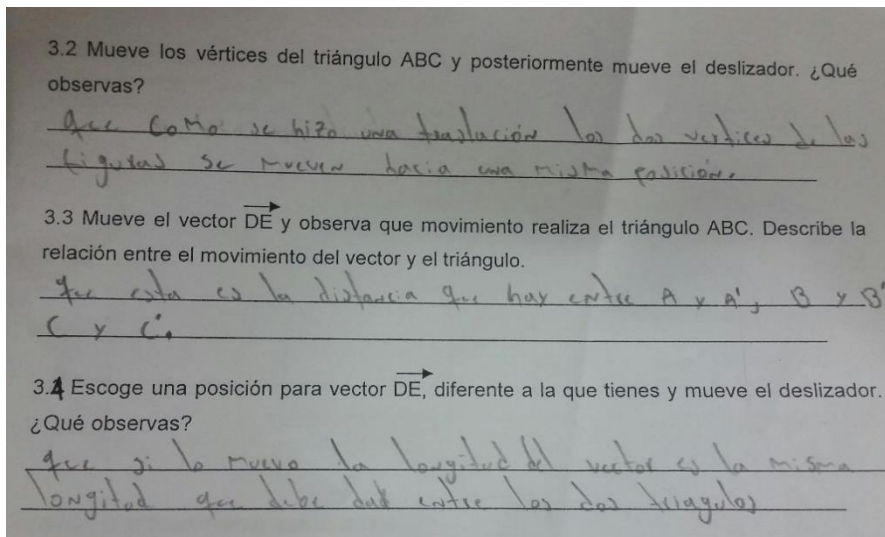 3.2 Mueve los vértices del triángulo ABC y posteriormente mueve el deslizador. ¿Qué
observas?
que como se hizo una traslación los dos vertices de las
figuras se mueven hacia una misma posición.
3.3 Mueve el vector DE y observa que movimiento realiza el triángulo ABC. Describe la
relación entre el movimiento del vector y el triángulo.
que esta es la distancia que hay entre A y A', B y B'
C y C'.
3.4 Escoge una posición para vector DE, diferente a la que tienes y mueve el deslizador.
¿Qué observas?
que si lo muevo la longitud del vector es la misma
longitud que debe dat entre los dos triagulos